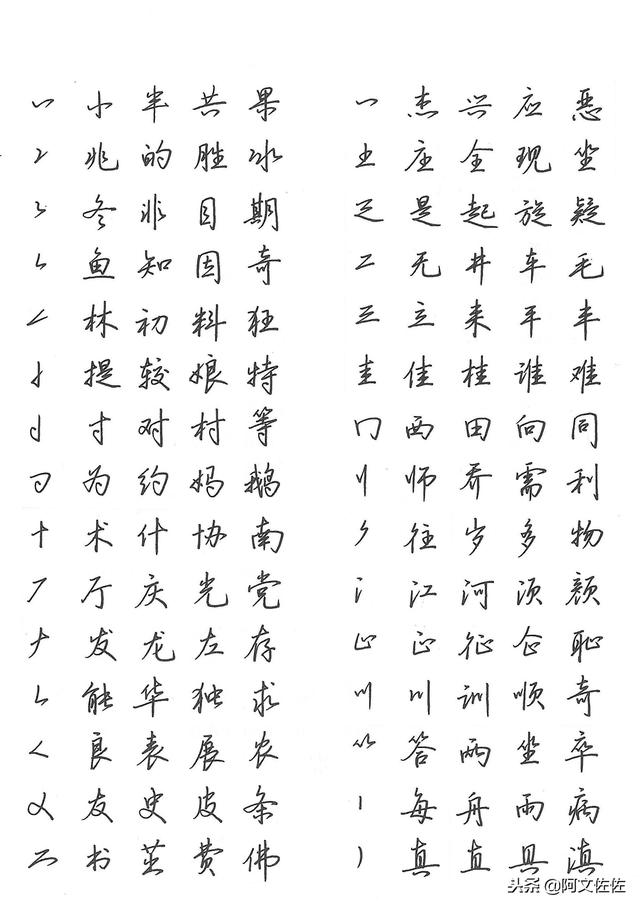 小 半 共 果
兆 的 胜 冰
冬 非 目 期
鱼 知 因 奇
林 初 料 狂
提 较 娘 特
寸 对 村 等
为 约 妈 鹅
十 术 什 协 南
厅 庆 光 党
发 龙 左 存
能 华 独 求
良 表 展 农
友 史 皮 条
书 费 佛
一 杰 兴 应 恶
土 座 全 现 坐
是 起 旋 疑
二 无 井 车 毛
三 立 来 平 丰
圭 佳 桂 谁 难
冂 西 田 向 同
师 乔 需 利
往 岁 多 物
江 河 须 颜
止 正 征 企 耻
川 川 训 顺 奇
答 两 坐 卒
每 舟 雨 病
真 直 具 滇
头条 @阿文佐佐